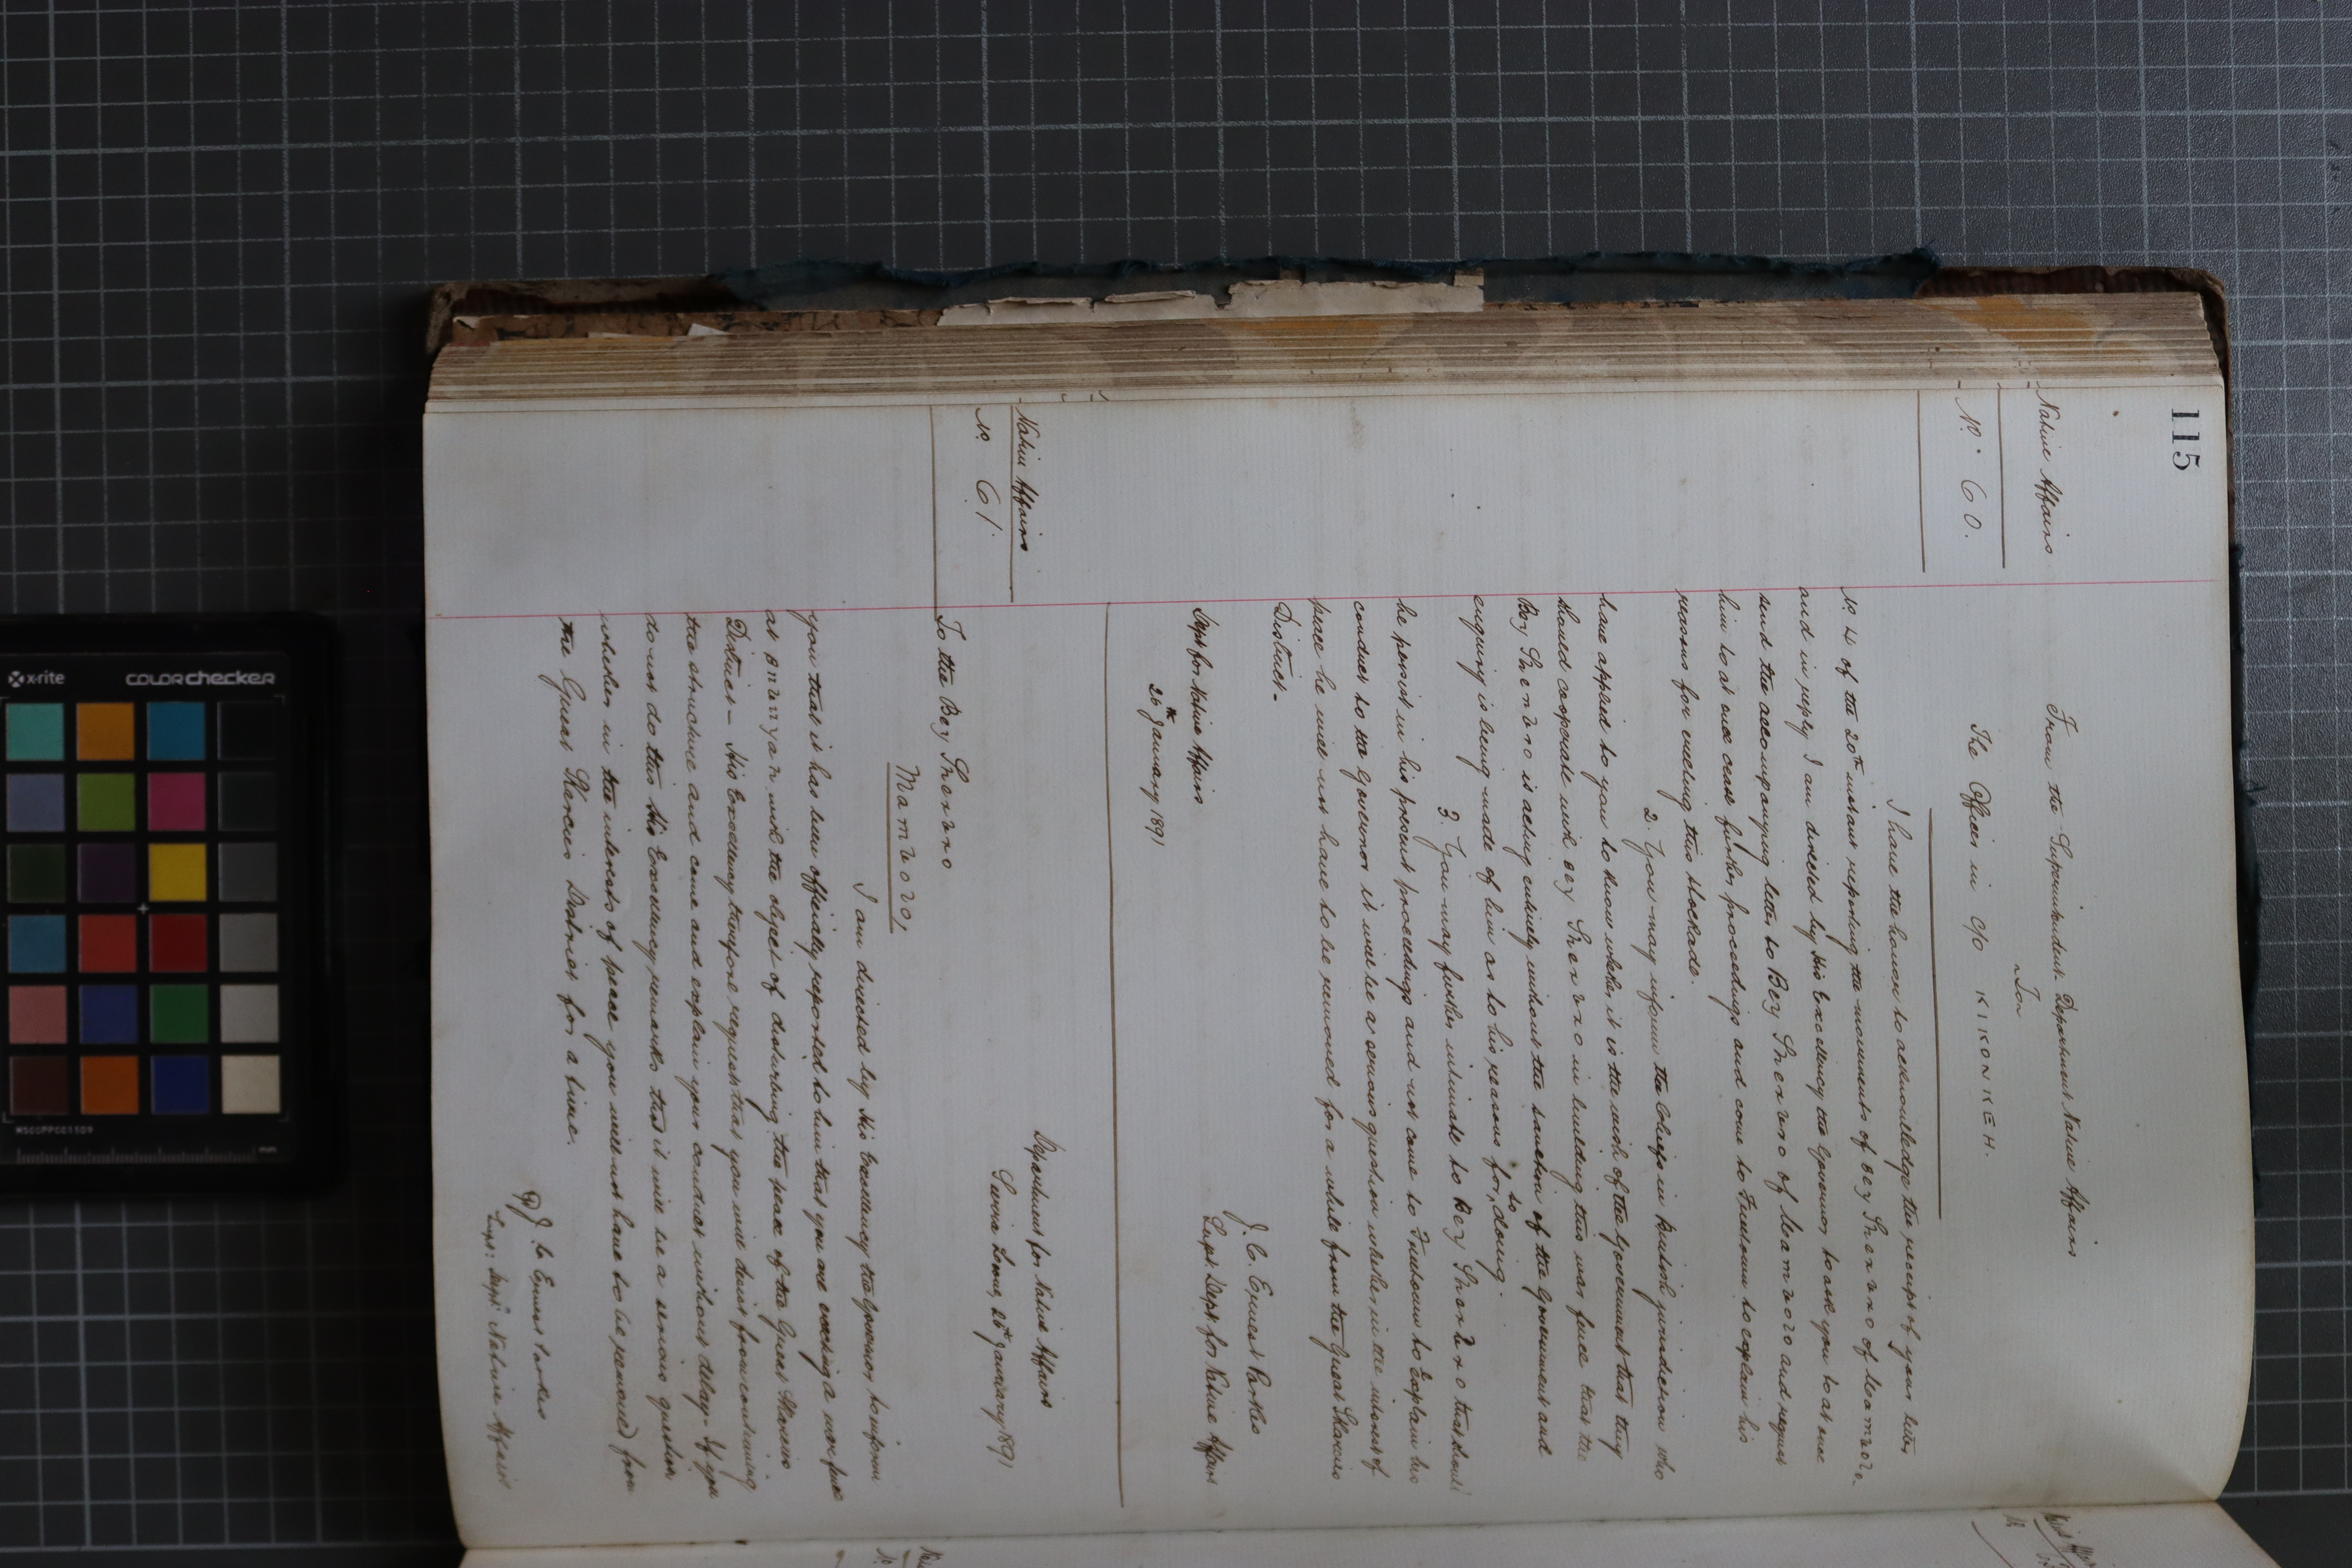 115
Native Affairs
No. 60.
From the Superintendent Department Native Affairs
To
The Officer in c/o KIKONKEH.
I have the honor to acknowledge the receipt of your letter
No 4 of the 20th instant reporting the movements of Bey Sherbro of
and in reply I am directed by His Excellency the Governor, to ask you to at once
send the accompanying letter to Bey of and request
him to at once cease further proceedings and come to Freetown to explain his
reasons for erecting this stockade.
2. You may inform the Chiefs in British jurisdiction who
have applied to you to know whether it is the wish of the Government that they
should cooperate with Bey in building this war fence that the
Bey is acting entirely without the sanction of the Government and
enquiry is being made of him as to his reasons for so doing
3. You may further intimate to Bey that should
he persist in his present proceedings and not come to Freetown to explain his
conduct to the Governor it will be a serious question whether in the interest of
peace he will not have to be removed for a while from the Great Skarcies
District -
J. C. Ernest Parkes
Supt. Dept. for Native Affairs
Dept for Native Affairs
26th January 1891
Native Affairs
No. 61.
Department for Native Affairs
Sierra Leone, 26th January 1891
To the Bey
I am directed by His Excellency the Governor, to inform
you that it has been officially reported to him that you are erecting a war fence
at with the object of disturbing the peace of the Great Skarcies
District - His Excellency therefore requests that you will desist from continuing
the structure and come and explain your conduct without delay - If you
do not do this His Excellency remarks that it will be a serious question
whether in the interests of peace you will not have to be removed from
the Great Skarcies District for a time.
J. C. Ernest Parkes
Supt: Dept: Native Affairs
x-rite
colorchecker
MSCCPPCC1109
mm